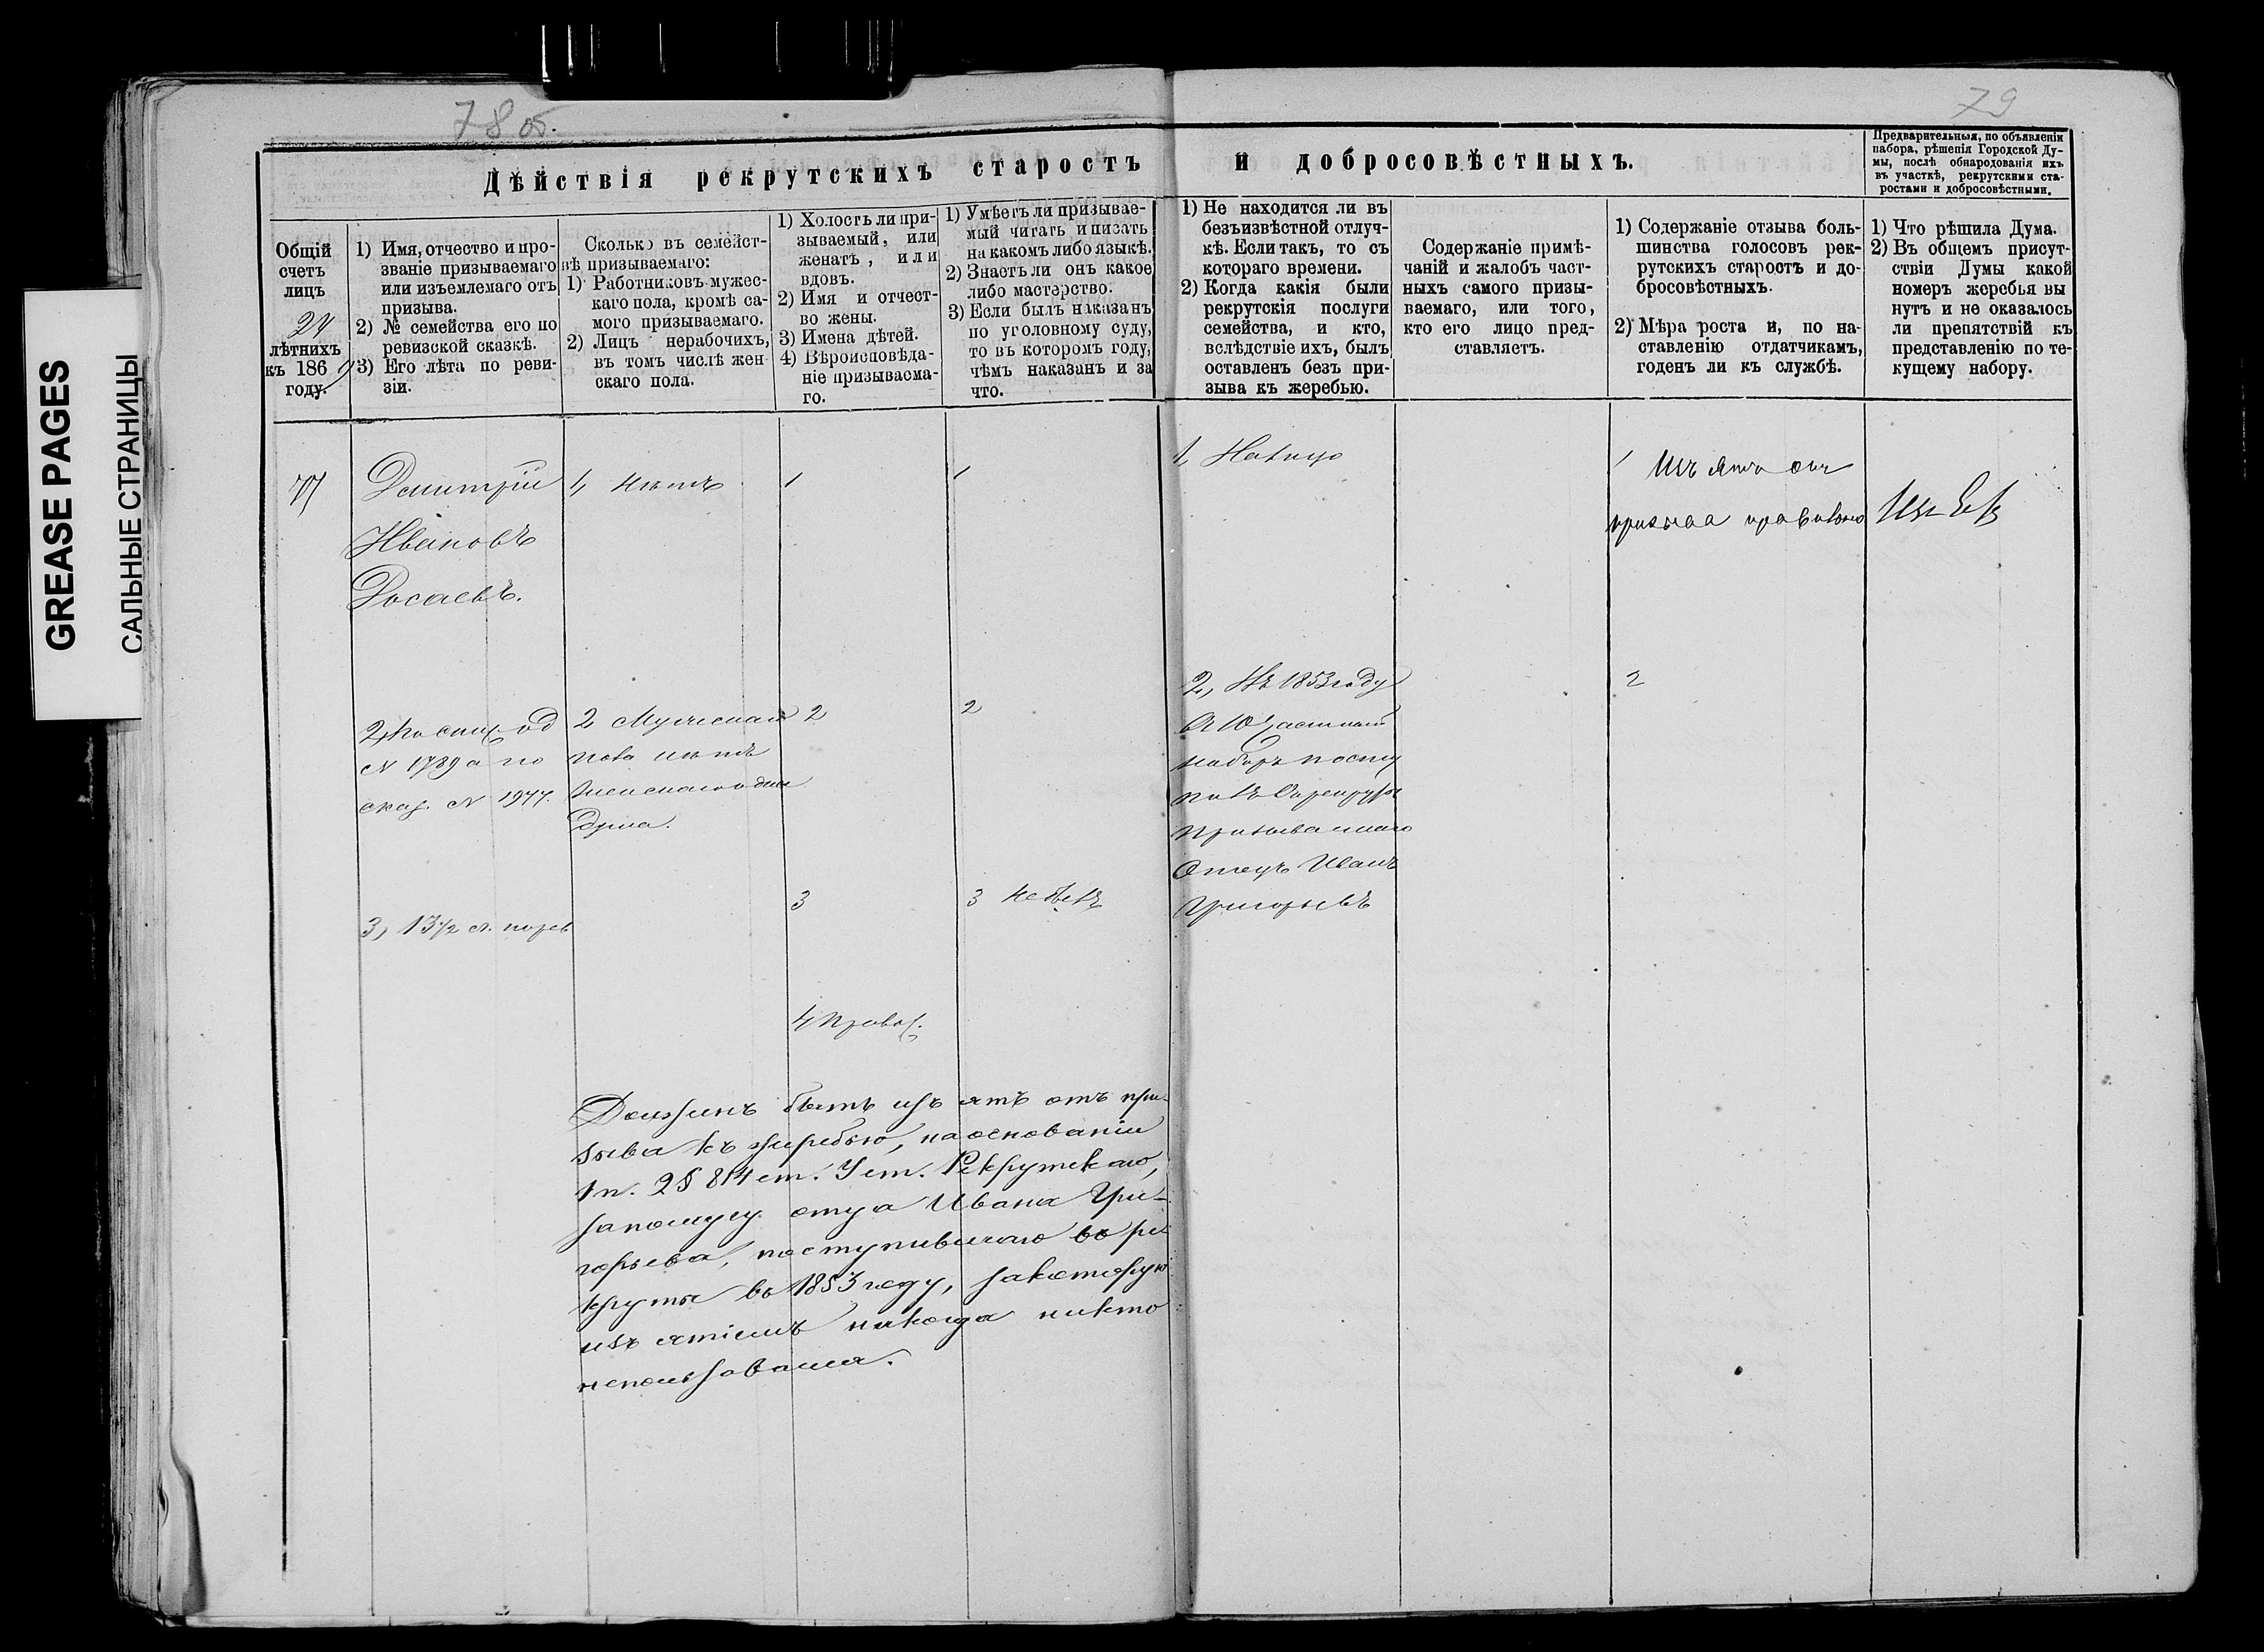 78 об.
79
GREASE PAGES
САЛЬНЫЕ СТРАНИЦЫ
Дѣйствія рекрутскихъ старостъ и добросовѣстныхъ.
Предварительныя, по объявленіи
набора, рѣшенія Городской Ду-
мы, послѣ обнародованія ихъ
въ участкѣ, рекрутскими ста-
ростами и добросовѣстными.
Общій
счетъ
лицъ
24
лѣтнихъ
къ 186
году.
1) Имя, отчество и про-
званіе призываемаго
или изъемлемаго отъ
призыва.
2) № семейства его по
ревизской сказкѣ.
3) Его лѣта по реви-
зіи.
Сколько въ семейст-
вѣ призываемаго:
1) Работниковъ мужес-
каго пола, кромѣ са-
мого призываемаго.
2) Лицъ нерабочихъ,
въ томъ числѣ жен-
скаго пола.
1) Холостъ ли при-
зываемый, или
женатъ, или
вдовъ.
2) Имя и отчест-
во жены.
3) Имена дѣтей.
4) Вѣроисповѣда-
ніе призываема-
го.
1) Умѣетъ ли призывае-
мый читать и писать
на какомъ либо языкѣ.
2) Знаетъ ли онъ какое
либо мастерство.
3) Если былъ наказанъ
по уголовному суду,
то въ которомъ году,
чѣмъ наказанъ и за
что.
1) Не находится ли въ
безъизвѣстной отлуч-
кѣ. Если такъ, то съ
котораго времени.
2) Когда какія были
рекрутскія послуги
семейства, и кто,
вслѣдствіе ихъ, былъ
оставленъ безъ при-
зыва къ жеребью.
Содержаніе примѣ-
чаній и жалобъ част-
ныхъ самого призы-
ваемаго, или того,
кто его лицо пред-
ставляетъ.
1) Содержаніе отзыва боль-
шинства голосовъ рек-
рутскихъ старостъ и до-
бросовѣстныхъ.
2) Мѣра роста и, по на-
ставленію отдатчикамъ,
годенъ ли къ службѣ.
1) Что рѣшила Дума.
2) Въ общемъ присут-
ствіи Думы какой
номеръ жеребья вы
нутъ и не оказалось
ли препятствій къ
представленію по те-
кущему набору.
77
Дмитрій
Ивановъ
Досаевъ.
2,
№ 1789 а по
сказ. № 1977.
3) 13½ л. по рев
1, нѣтъ
2 Мужескаго
пола нѣтъ
Женскаго одна
душа.
1
2
3
4, Правос.
1
2
3 не былъ
1, Налицо
2, Въ 1853 году
въ 10 частный
наборъ посту
пилъ въ рекруты
призываемаго
Отецъ Иванъ
Григорьевъ
1 Изъятъ отъ
призыва правильно
2
Долженъ быть изъятъ отъ при-
зыва къ жеребью, на основаніи
1 п. 2 § 814 ст. Уст. Рекрутскаго,
за послугу отца Ивана Гри-
горьева, поступившаго въ ре-
круты въ 1853 году, за которую
изъятіемъ никогда никто
непользовался.